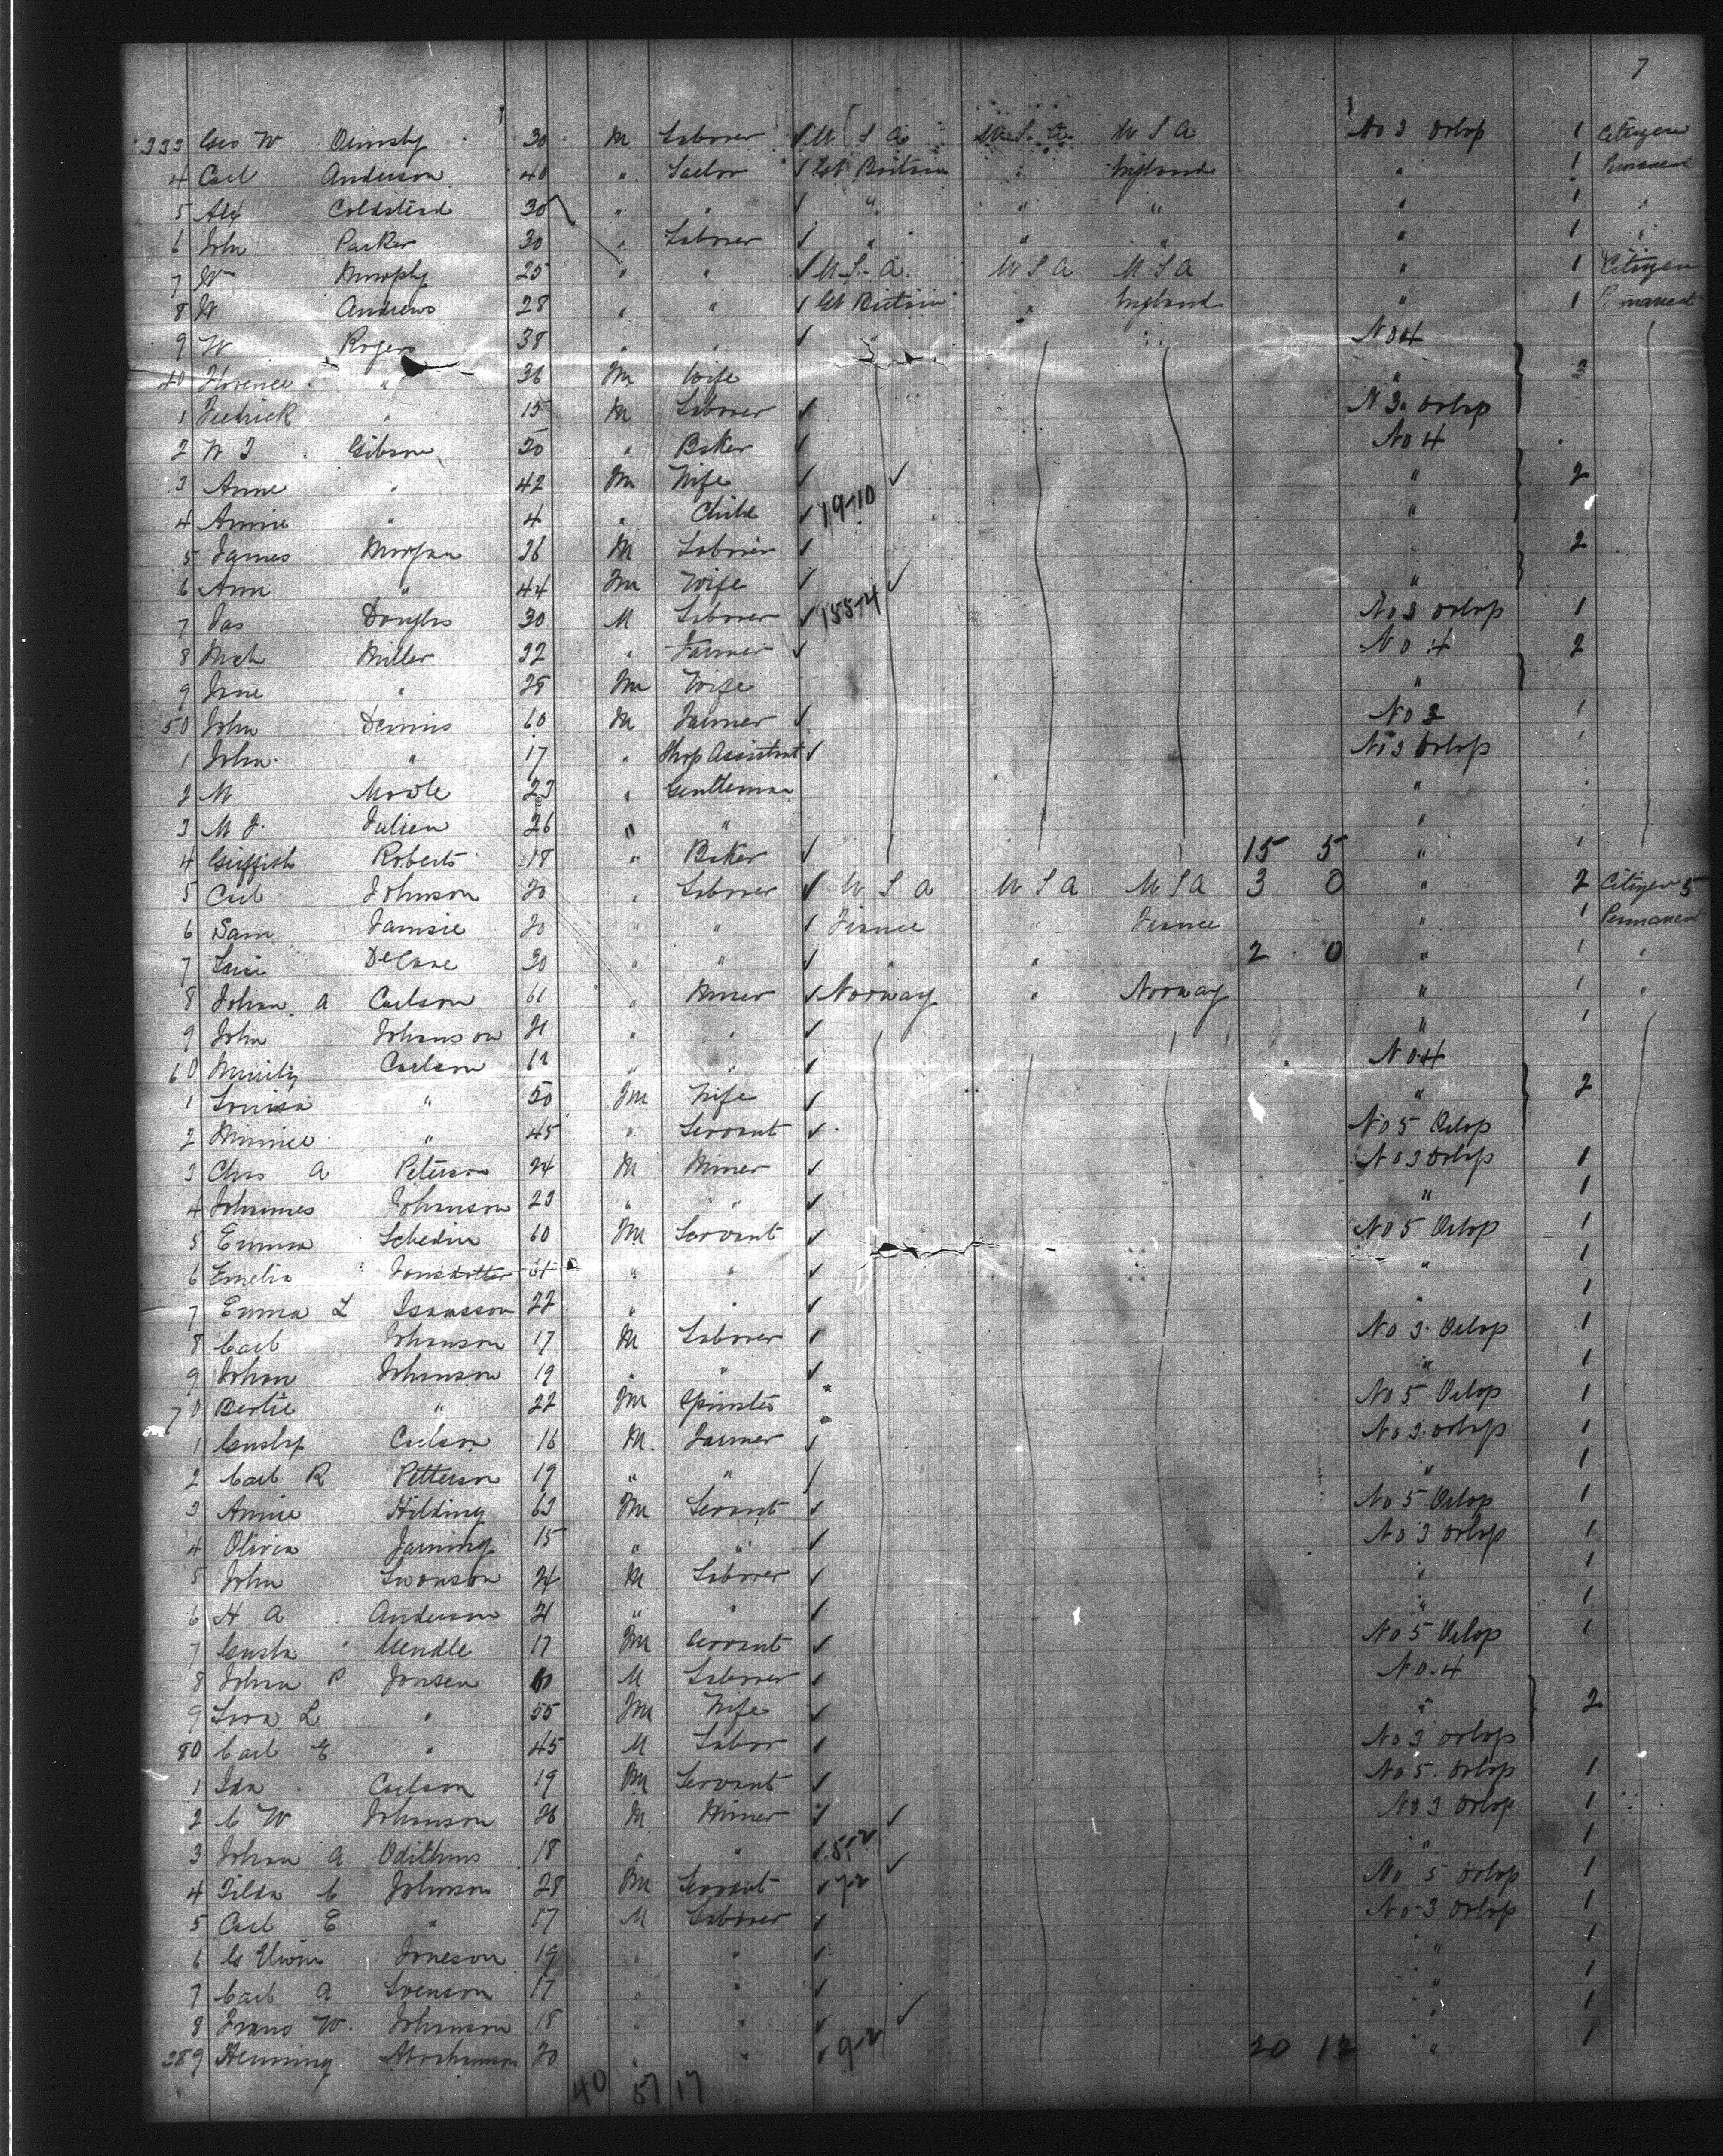 7
333 Geo W Ormsby 30 M Laborer ✓ U S A U.S.A. U S A No 3 Orlop 1 Citizen
4 Carl Anderson 40 " Sailor ✓ Gt Britain " England " 1 Permanent
5 Alex Coldstead 30 " " ✓ " " " " 1 "
6 John Parker 30 " Laborer ✓ " " " " 1 "
7 Wm Murphy 25 " " ✓ U.S.A. U S A U S A " 1 Citizen
8 W Andrews 28 " " ✓ Gt Britain " England " 1 Permanent
9 W Rogers 38 " " ✓ " No 4
40 Florence " 36 Fm Wife "
1 Fredrick " 15 M Laborer ✓ N 3 Orlop
2 W J Gibson 50 " Baker ✓ No 4
3 Anne " 42 Fm Wife ✓ ✓ " 2
4 Annie " 4 " Child ✓ 19-10 "
5 James Morgan 36 M Laborer ✓ " 2
6 Ann " 44 Fm Wife ✓ ✓ "
7 Jas Douglas 30 M Laborer ✓ 155-4 No 3 Orlop 1
8 Miller 32 " Farmer ✓ No 4 2
9 Jane " 25 Fm Wife "
50 John Dennis 60 M Farmer ✓ No 3 1
1 John " 17 " Shop Assistant ✓ No 3 Orlop 1
2 M 23 " Gentleman "
3 M J. Julien 26 " " "
4 Griffith Roberts 18 " Baker ✓ 15 5 " 1
5 Carl Johnson 20 " Laborer ✓ U S A U S A U S A 3 0 " 2 Citizen 5
6 Sam 20 " " ✓ France " France " 1 Permanent
7 30 " " ✓ " " 2 0 " 1 "
8 Johan A Carlson 61 " Miner ✓ Norway " Norway " 1 "
9 John Johanson 21 " " ✓ " 1
60 Carlson " " ✓ No 4
1 Louisa " 50 Fm Wife ✓ " 2
2 Minnie " 45 " Servant ✓ No 5 Orlop
3 Chas A Peterson 24 M Miner ✓ No 3 Orlop 1
4 Johannes Johanson 23 " " ✓ " 1
5 Emma Schedin 60 Fm Servant ✓ No 5 Orlop 1
6 Emelia Jonsdotter " " ✓ " 1
7 Emma L Isaksson 22 " " ✓ " 1
8 Carl Johanson 17 M Laborer ✓ No 3 Orlop 1
9 Johan Johanson 19 " " ✓ " 1
70 Bertie " 22 Fm Spinster No 5 Orlop 1
1 Gustaf Carlson 16 M Farmer ✓ No 3 Orlop 1
2 Carl R Petterson 19 " " ✓ " 1
3 Annie Hilding 63 Fm Servant ✓ No 5 Orlop 1
4 Oliver 15 " " ✓ No 3 Orlop 1
5 John Swanson 24 M Laborer ✓ " 1
6 H A Anderson 21 " " ✓ " 1
7 17 Fm Servant ✓ No 5 Orlop 1
8 Johan P Jonsen M Laborer ✓ No. 4
9 L " 55 Fm Wife ✓ " 2
80 Carl E " 45 M Labor ✓ No 3 Orlop
1 Ida Carlson 19 Fm Servant ✓ No 5 Orlop 1
2 C W Johanson 26 M Miner ✓ ✓ No 3 Orlop 1
3 Johan A 18 " " ✓ 5-2 " 1
4 Tilda C Johnson 28 Fm Servant ✓ 7-2 ✓ No 5 Orlop 1
5 Carl E " 17 M Laborer ✓ No 3 Orlop 1
6 Joneson 19 " " ✓ " 1
7 Carl A Svenson 17 " " ✓ " 1
8 Frans W. Johanson 18 " " ✓ ✓ " 1
389 Henning Abrahamson 20 " " ✓ 9-2 20 12 " 1
40 57 17